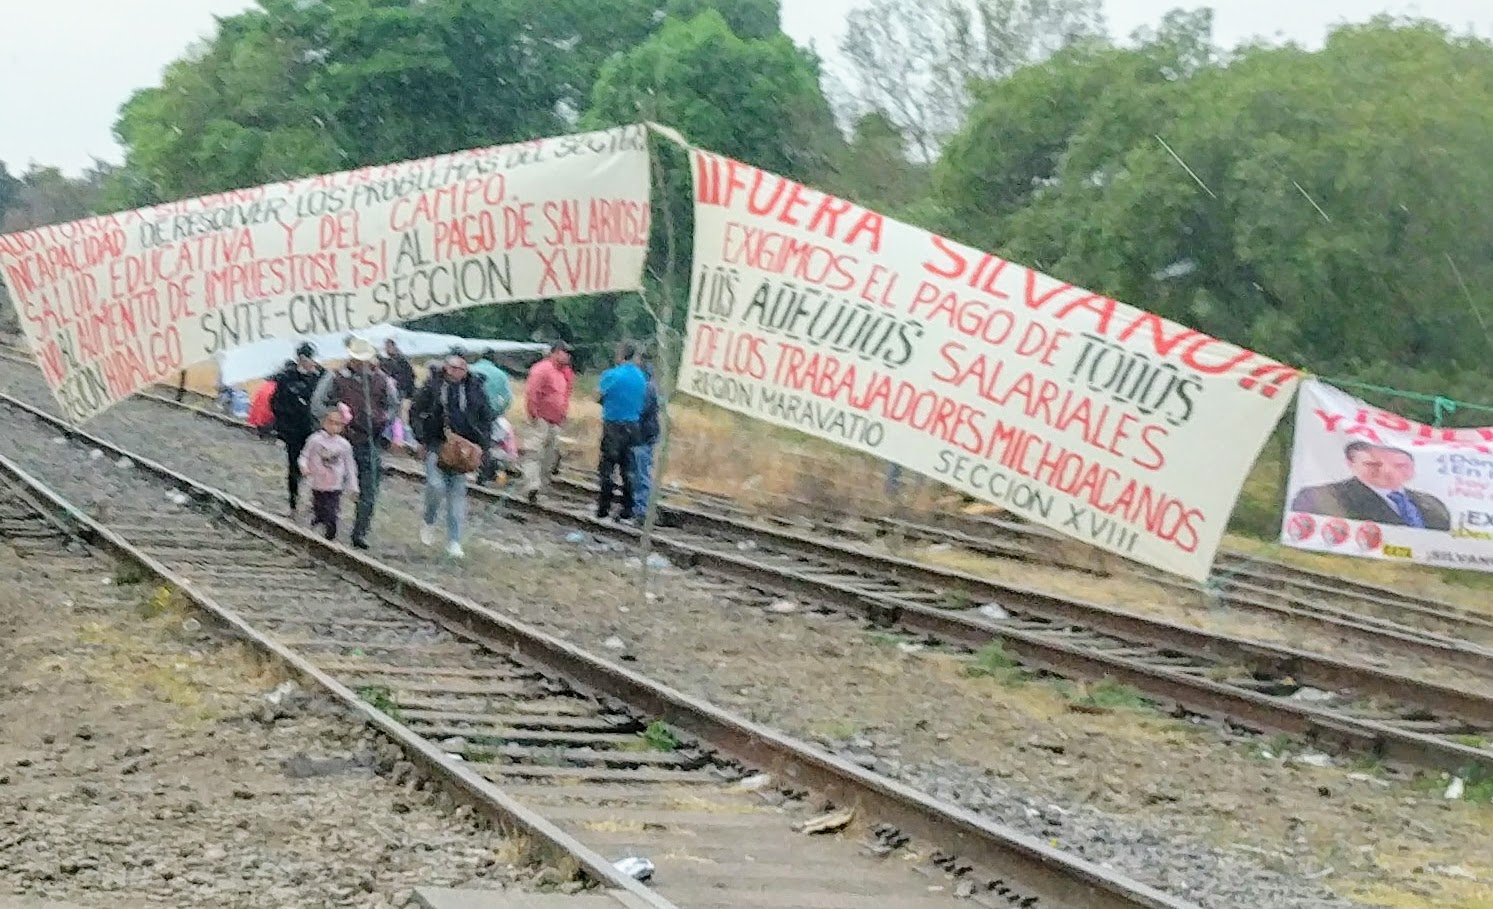 A SILVANO Y
INCAPACIDAD DE RESOLVER LOS PROBLEMAS DEL SECTOR
SALUD EDUCATIVA Y DEL CAMPO.
¡NO AL AUMENTO DE IMPUESTOS! ¡SI AL PAGO DE SALARIOS!
REGION HIDALGO SNTE-CNTE SECCION XVIII
¡¡FUERA SILVANO!!
EXIGIMOS EL PAGO DE TODOS
LOS ADEUDOS SALARIALES
DE LOS TRABAJADORES MICHOACANOS
REGION MARAVATIO SECCION XVIII
YA
¡SILVANO